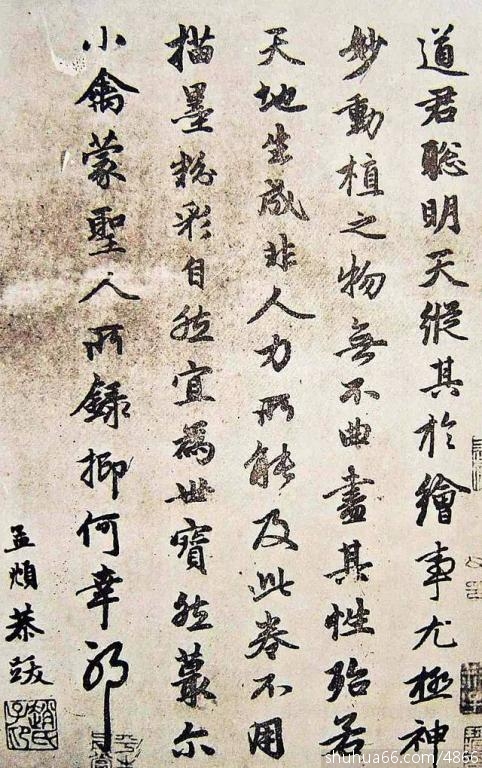 道君聰明天縱其於繪事尤極神
妙動植之物無不曲盡其性殆若
天地生成非人力所能及此卷不用
描墨粉彩自然宜為世寶然蕞尔
小禽蒙聖人所錄抑何幸耶
孟頫恭跋
趙氏子昂
shuhua66.com/4866